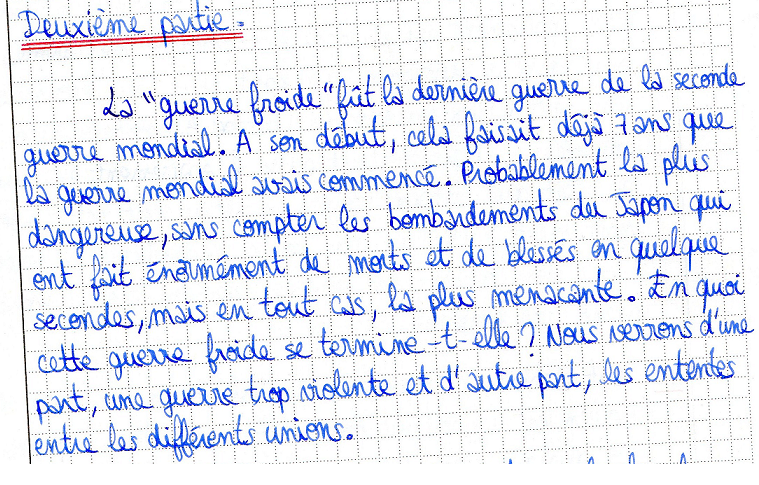 Deuxième partie.
La "guerre froide" fût la dernière guerre de la seconde
guerre mondial. A son début, cela faisait déjà 7 ans que
la guerre mondial avais commencé. Probablement la plus
dangereuse, sans compter les bombardements du Japon qui
ont fait énormément de morts et de blessés en quelque
secondes, mais en tout cas, la plus menacante. En quoi
cette guerre froide se termine-t-elle? Nous verrons d'une
part, une guerre trop violente et d'autre part, les ententes
entre les différents unions.